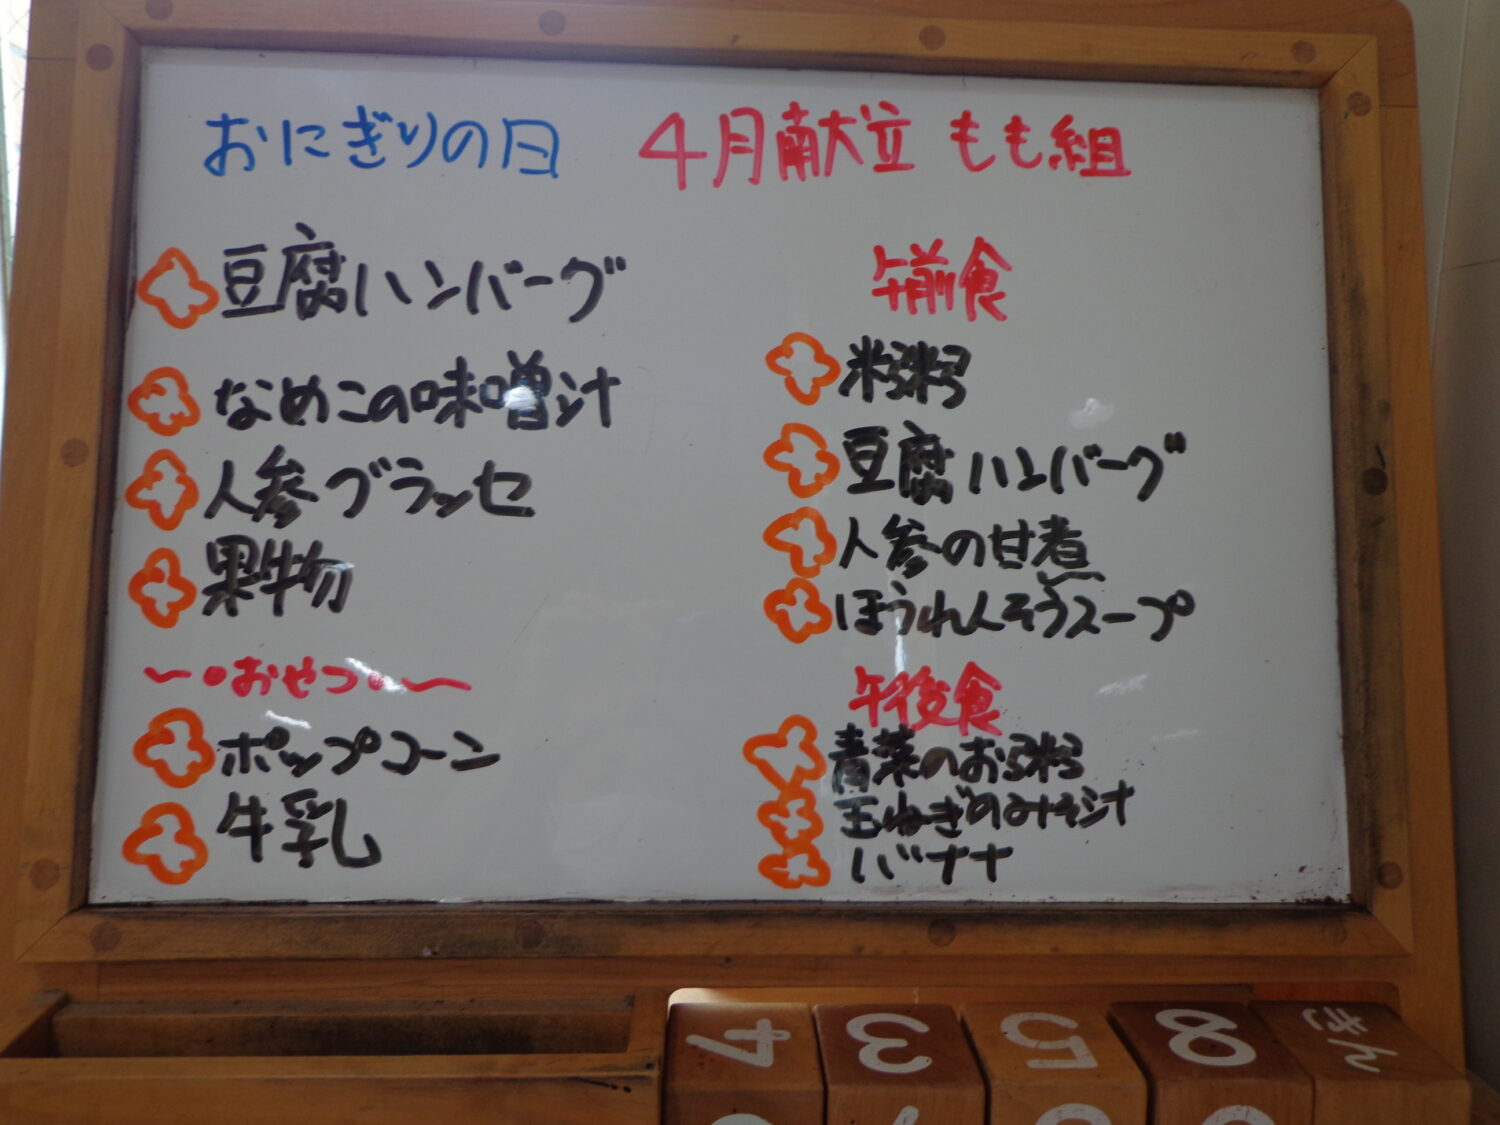 おにぎりの日
豆腐ハンバーグ
なめこの味噌汁
人参グラッセ
果物
〜・おやつ・〜
ポップコーン
牛乳
4月献立 もも組
午前食
米粥
豆腐ハンバーグ
人参の甘煮
ほうれんそうスープ
午後食
青菜のお粥
玉ねぎのみそ汁
バナナ
4
3
5
8
きん